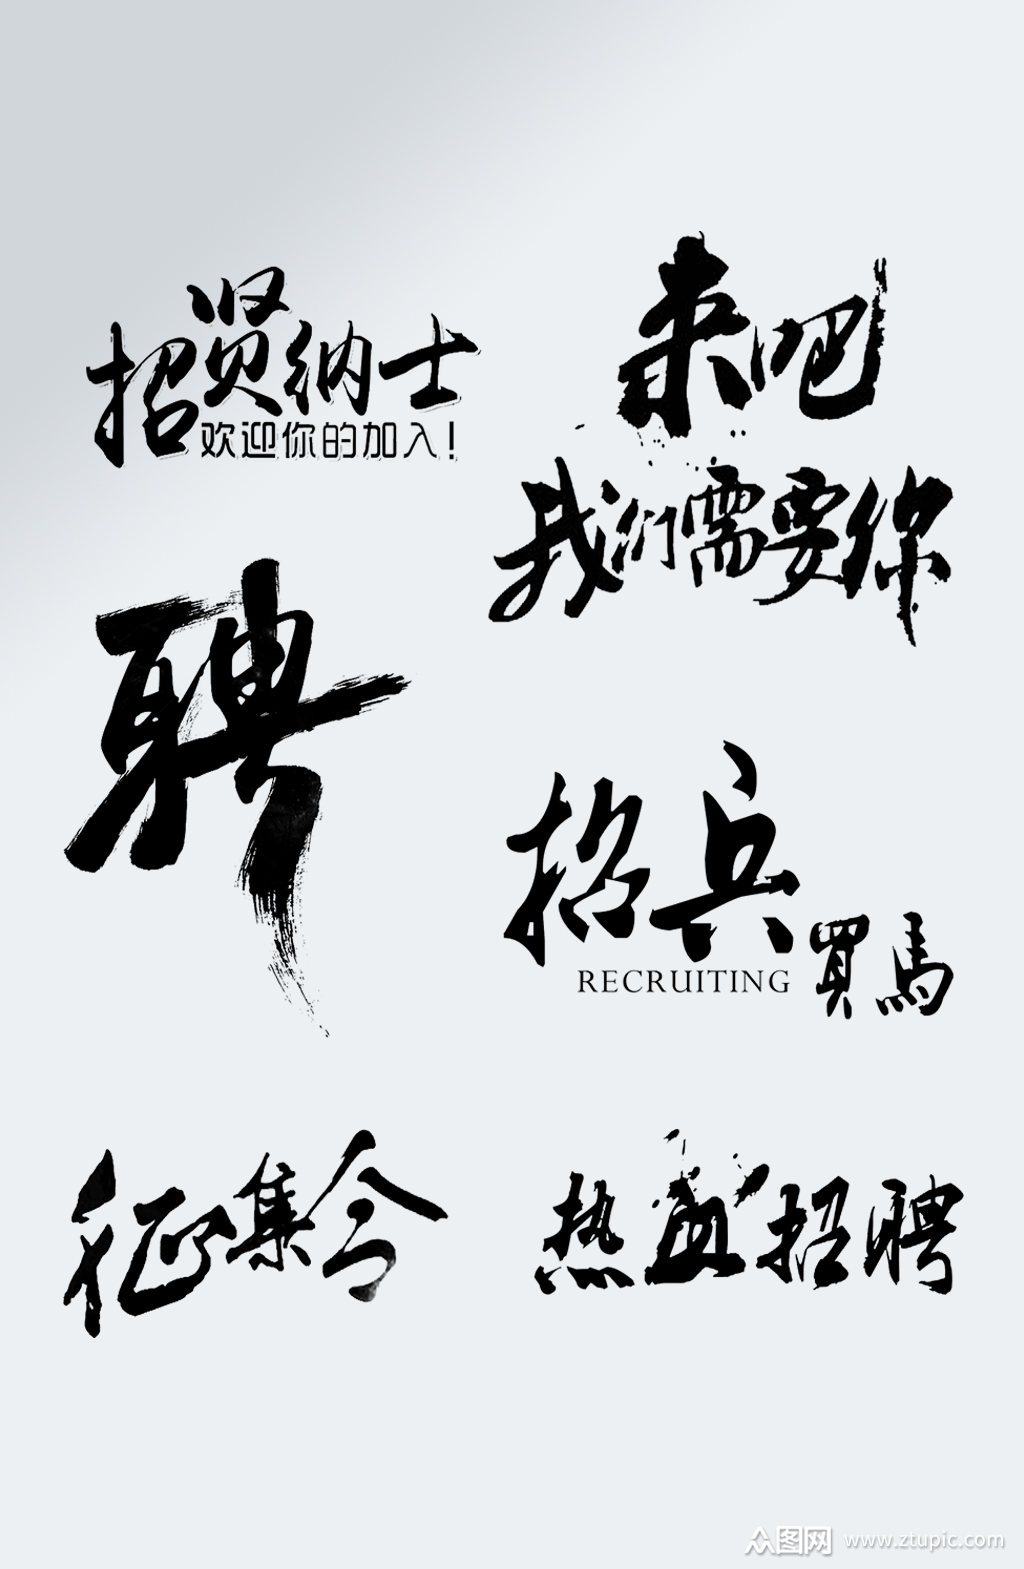 招贤纳士
欢迎你的加入！
来吧
我们需要你
聘
招兵買馬
RECRUITING
征集令
热血招聘
众图网 www.ztupic.com